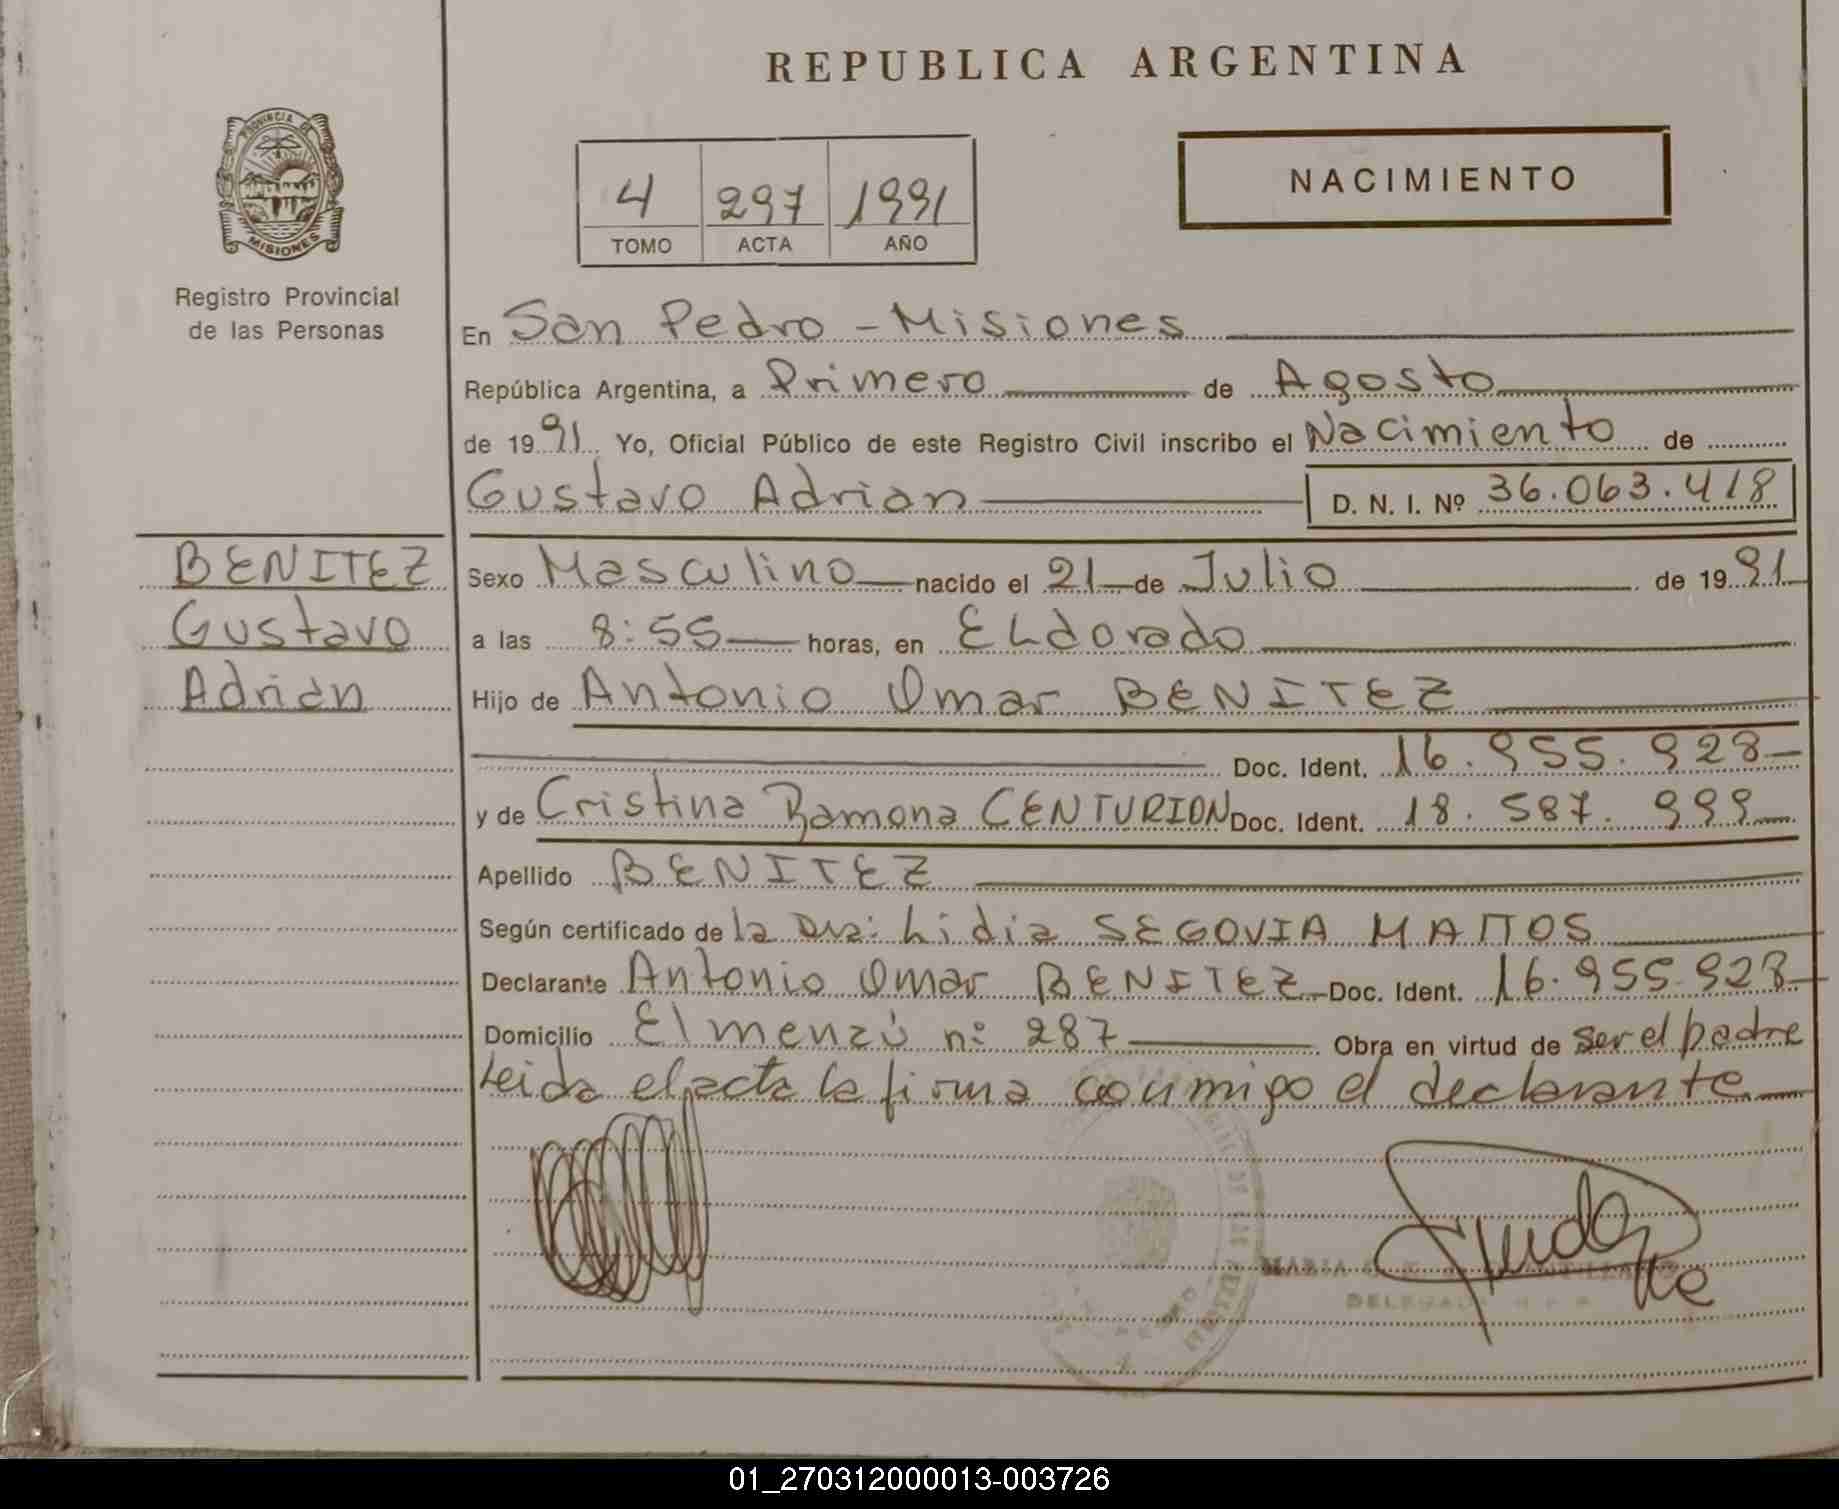 REPUBLICA ARGENTINA
PROVINCIA DE
MISIONES
Registro Provincial
de las Personas
4 297 1991
TOMO ACTA AÑO
NACIMIENTO
En San Pedro - Misiones
República Argentina, a Primero de Agosto
de 1991 Yo, Oficial Público de este Registro Civil inscribo el Nacimiento de
Gustavo Adrian D. N. I. Nº 36.063.418
BENITEZ
Gustavo
Adrián
Sexo Masculino nacido el 21 de Julio de 1991
a las 8:55 horas, en ELdorado
Hijo de Antonio Omar BENITEZ
Doc. Ident. 16.955.928
y de Cristina Ramona CENTURION Doc. Ident. 18.587.999
Apellido BENITEZ
Según certificado de la Dra: Lidia SEGOVIA MATTOS
Declarante Antonio Omar BENITEZ Doc. Ident. 16.955.928
Domicilio El menzú nº 287 Obra en virtud de ser el padre
Leida el acta la firma conmigo el declarante
MARIA
01_270312000013-003726